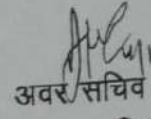 अवर सचिव